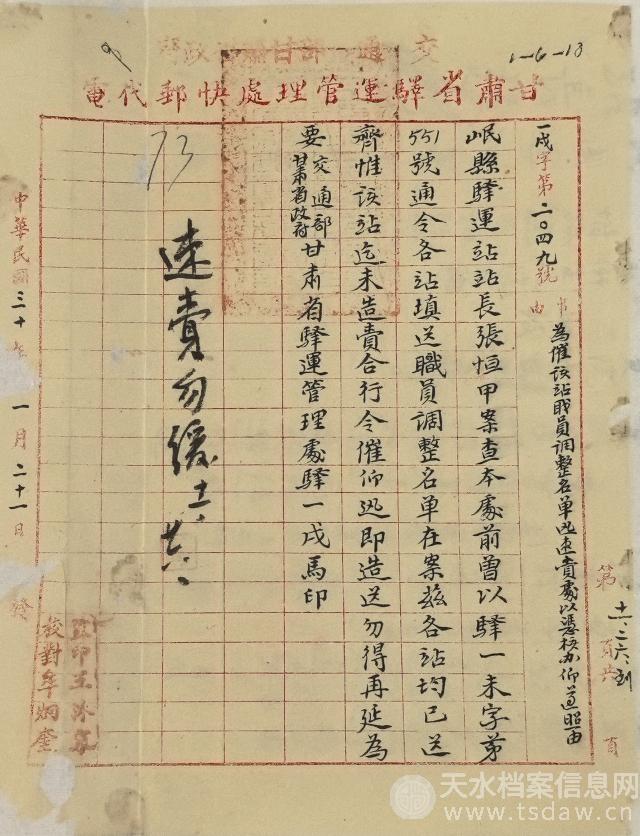 1-6-13
交通部甘肃省政府
甘肅省驛運管理處快郵代電
一戌字第二〇四九號
事由
為催該站职員調整名单迅速賫處以憑核办仰遵照由
第頁共頁
十一、廿六、到
岷縣驛運站站長張恒甲案查本處前曾以驛一未字苐
551號通令各站填送職員調整名单在案茲各站均已送
齊惟該站迄未造賫合行令催仰迅即造送勿得再延為
要交通部甘肃省政府甘肃省驛運管理處驛一戌馬印
速賫勿緩
73
中華民國三十年一月二十一日發
監印王
校對牟炳奎
天水档案信息网
www.tsdaw.cn